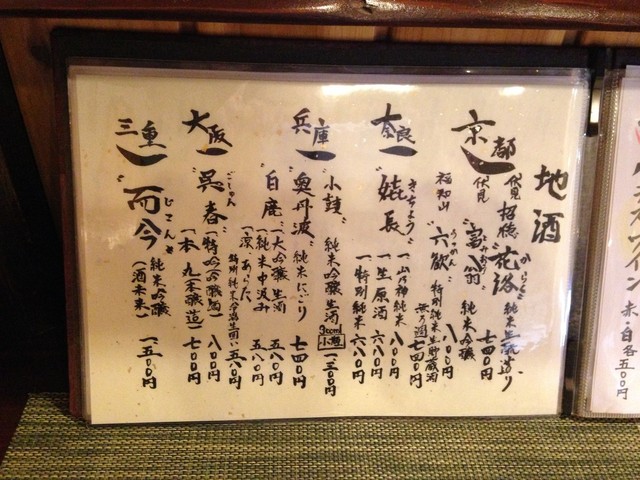 地酒
京都
伏見 招徳 "花洛" からく 純米生酛造り 七四〇円
伏見 "富翁" とみおう 純米吟醸 八〇〇円
福知山 "六歓" ろっかん 特別純米生貯蔵酒 無ろ過 七四〇円
奈良
"嬉長" きちょう
一山乃神純米 八〇〇円
一生原酒 六八〇円
一特別純米 六八〇円
兵庫
"小鼓" 純米吟醸 生酒 300ml 小瓶 一三〇〇円
"奥丹波" 純米にごり 七四〇円
"白鹿"
一大吟醸 生酒 五八〇円
一純米中汲み 五八〇円
大阪
"呉春" ごしゅん
一特吟 八〇〇円
一本丸 本醸造 七〇〇円
三重
"而今" じこん
純米吟醸
一五〇〇円
ワイン
赤・白 各 五〇〇円